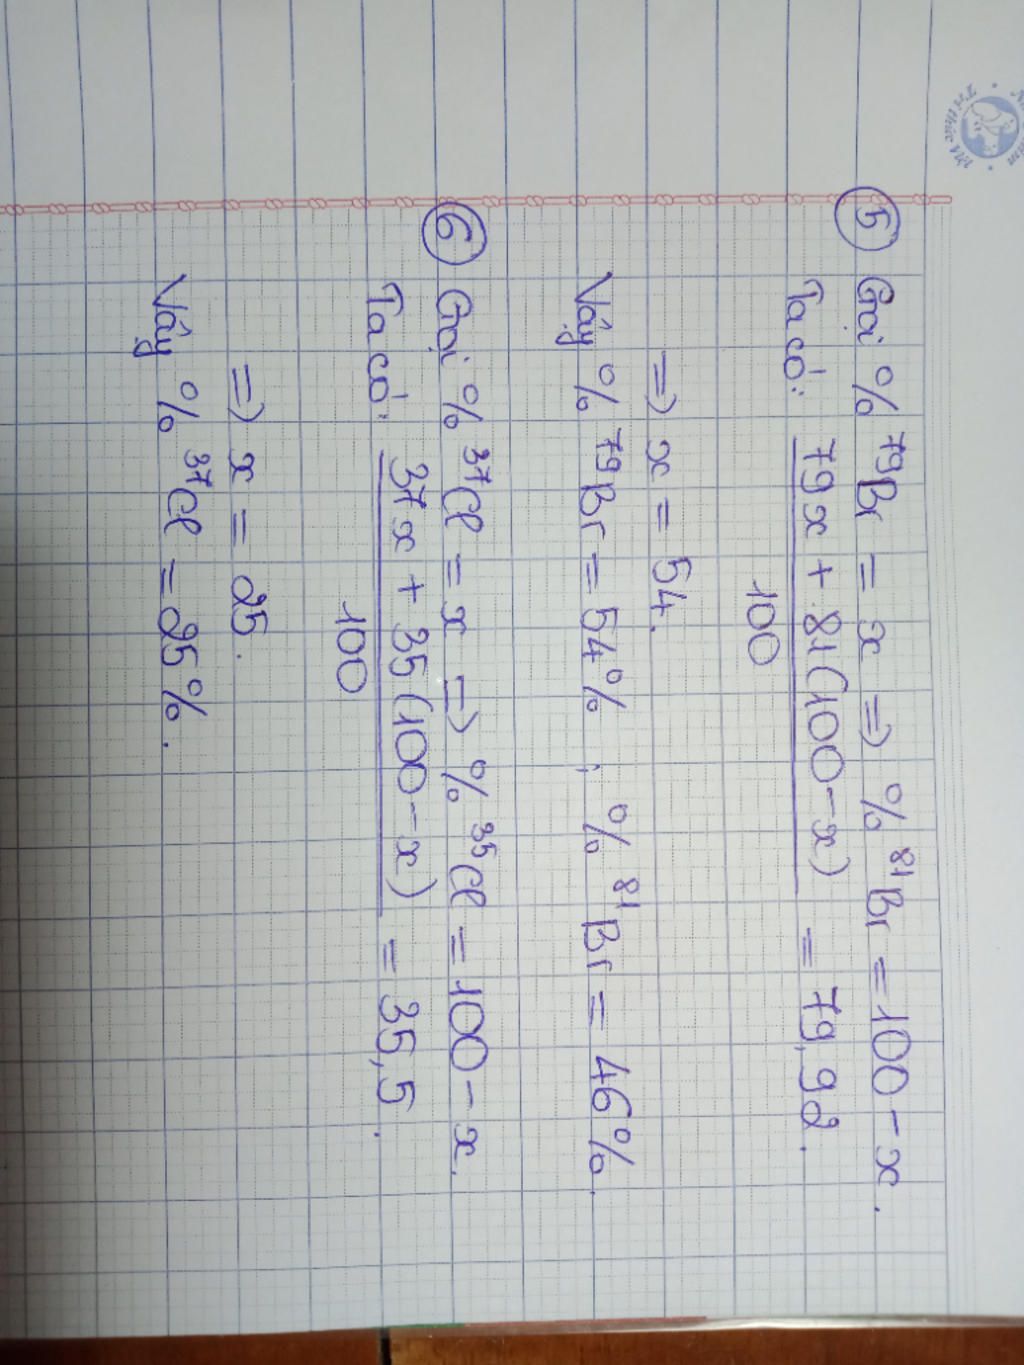 ⑤ Gọi % ⁷⁹Br = x => % ⁸¹Br = 100 - x.
Ta có: 79x + 81(100 - x) / 100 = 79,92.
=> x = 54.
Vậy % ⁷⁹Br = 54% ; % ⁸¹Br = 46%.
⑥ Gọi % ³⁷Cl = x => % ³⁵Cl = 100 - x.
Ta có: 37x + 35(100 - x) / 100 = 35,5.
=> x = 25.
Vậy % ³⁷Cl = 25%.
Tri thức Việt